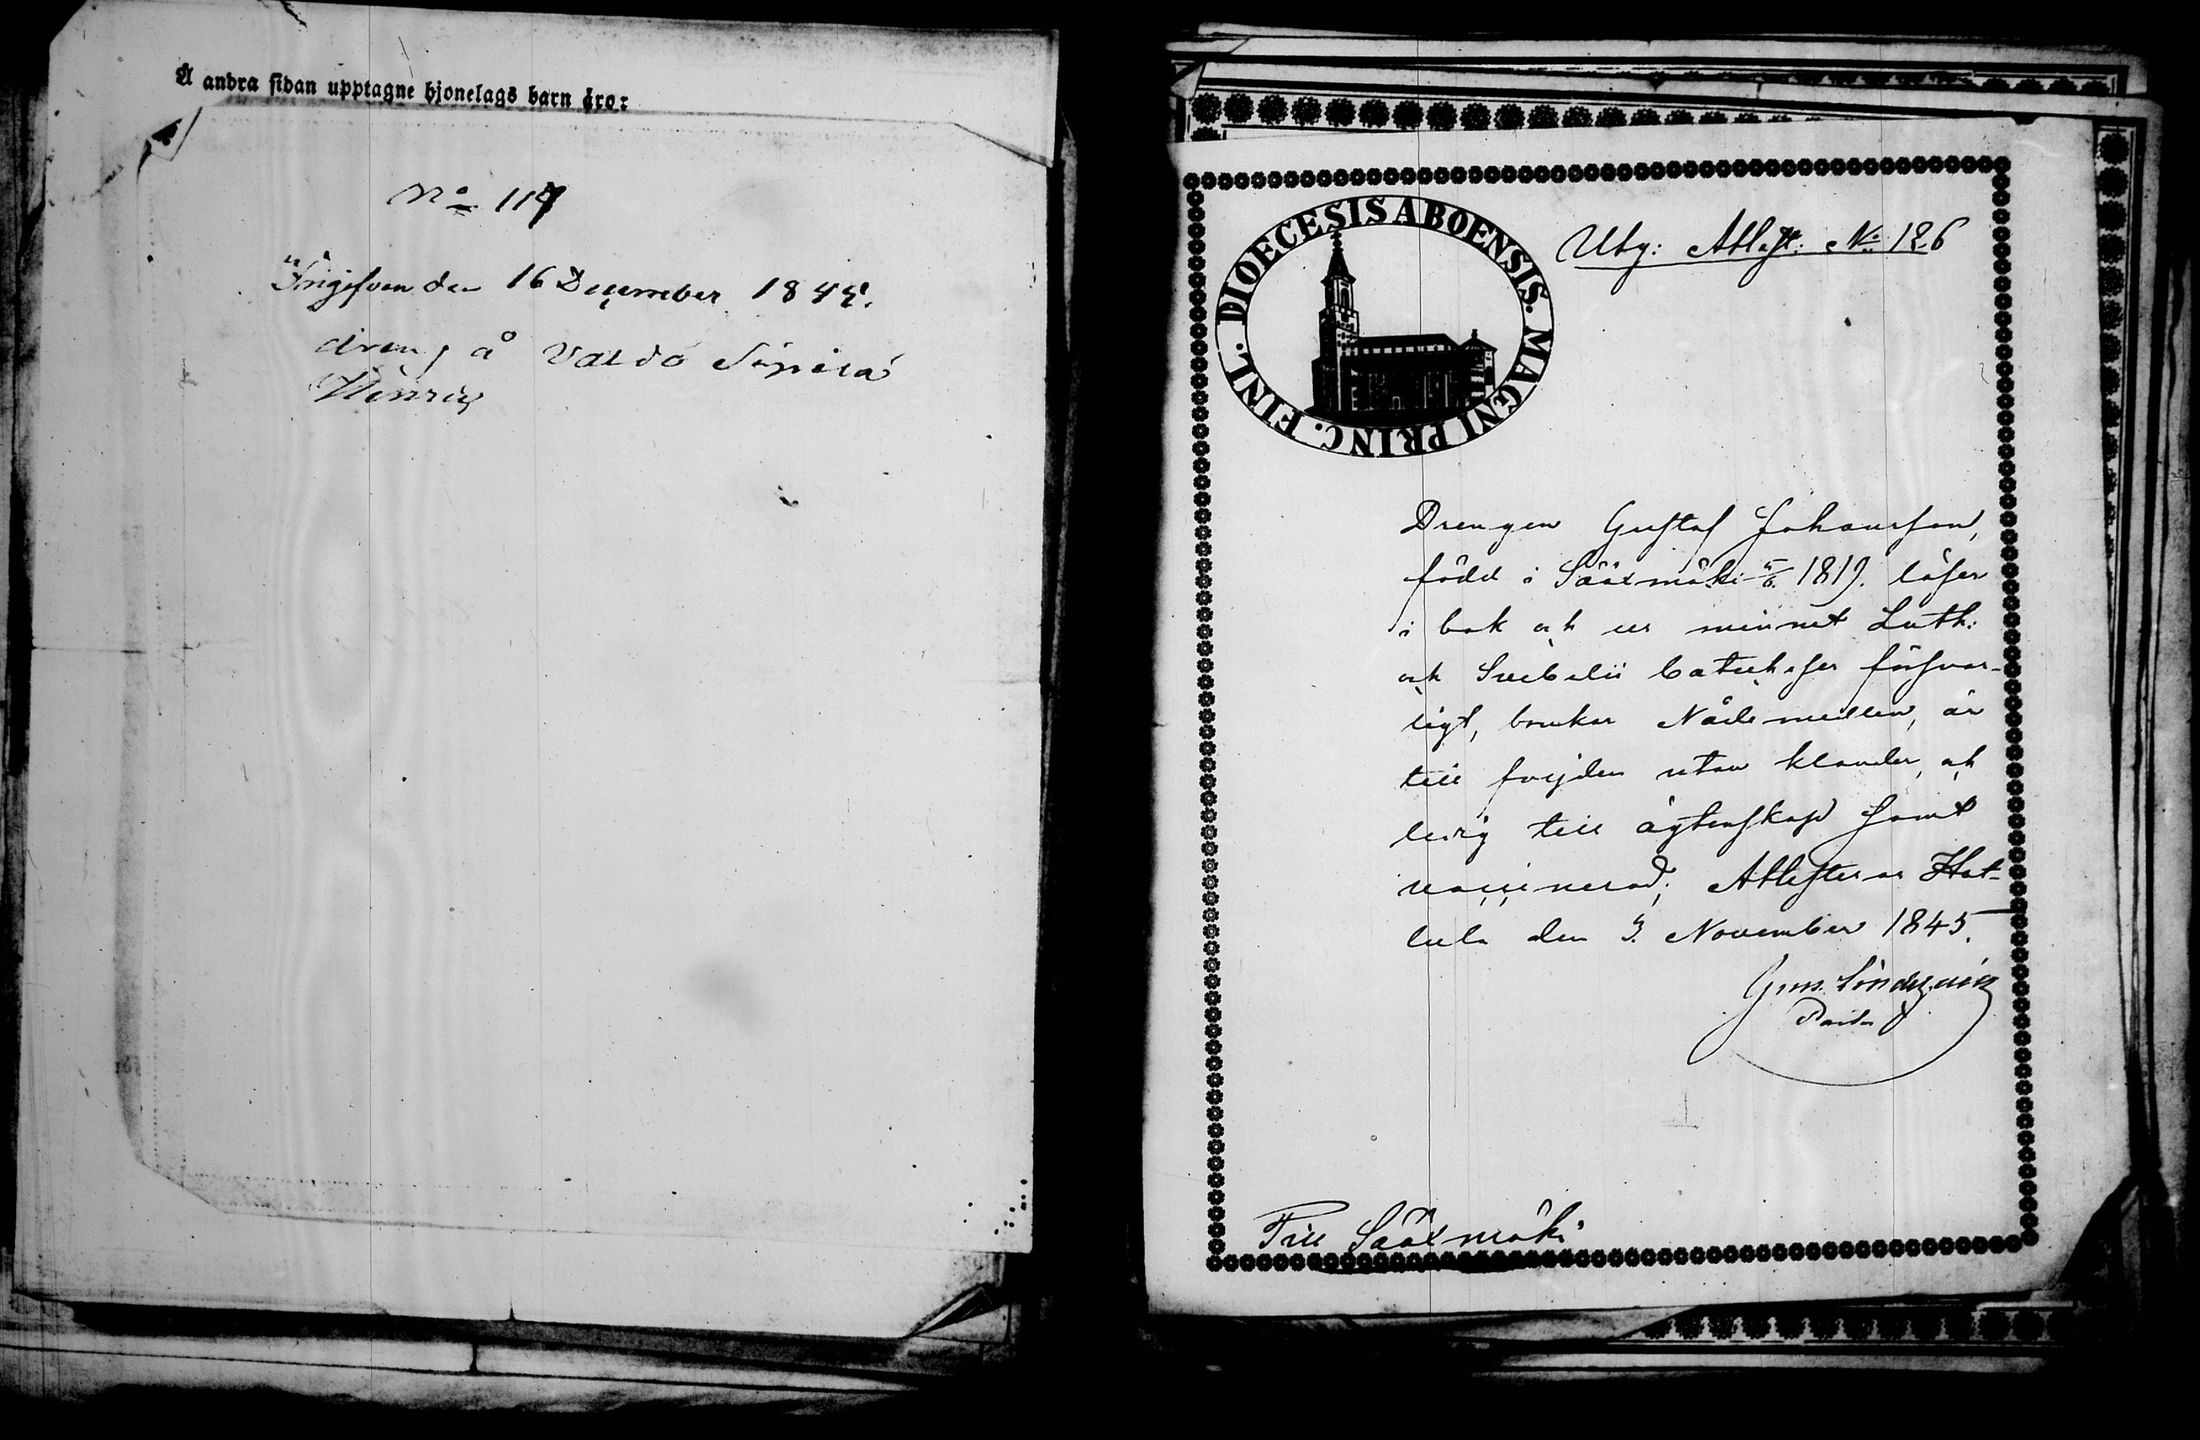 Å andra sidan upptagne hjonelags barn äro:
No 117
Ingifven den 16 December 1845.
dreng å
Henric
DIOECESIS ABOENSIS. MAGNI PRINC. FINL.
Utg: Attest. No 126
Drengen Gustaf Johansson,
född i Sääxmäki 5/6. 1819. läser
i bok och ur minnet Luth:
och Svebelii Catecheser försvar-
ligt, brukar Nådemedlen, är
till frejden utan klander, och
ledig till ägtenskap samt
vaccinerad; Attesterar Hat-
tula den 3. November 1845.
Till Sääxmäki